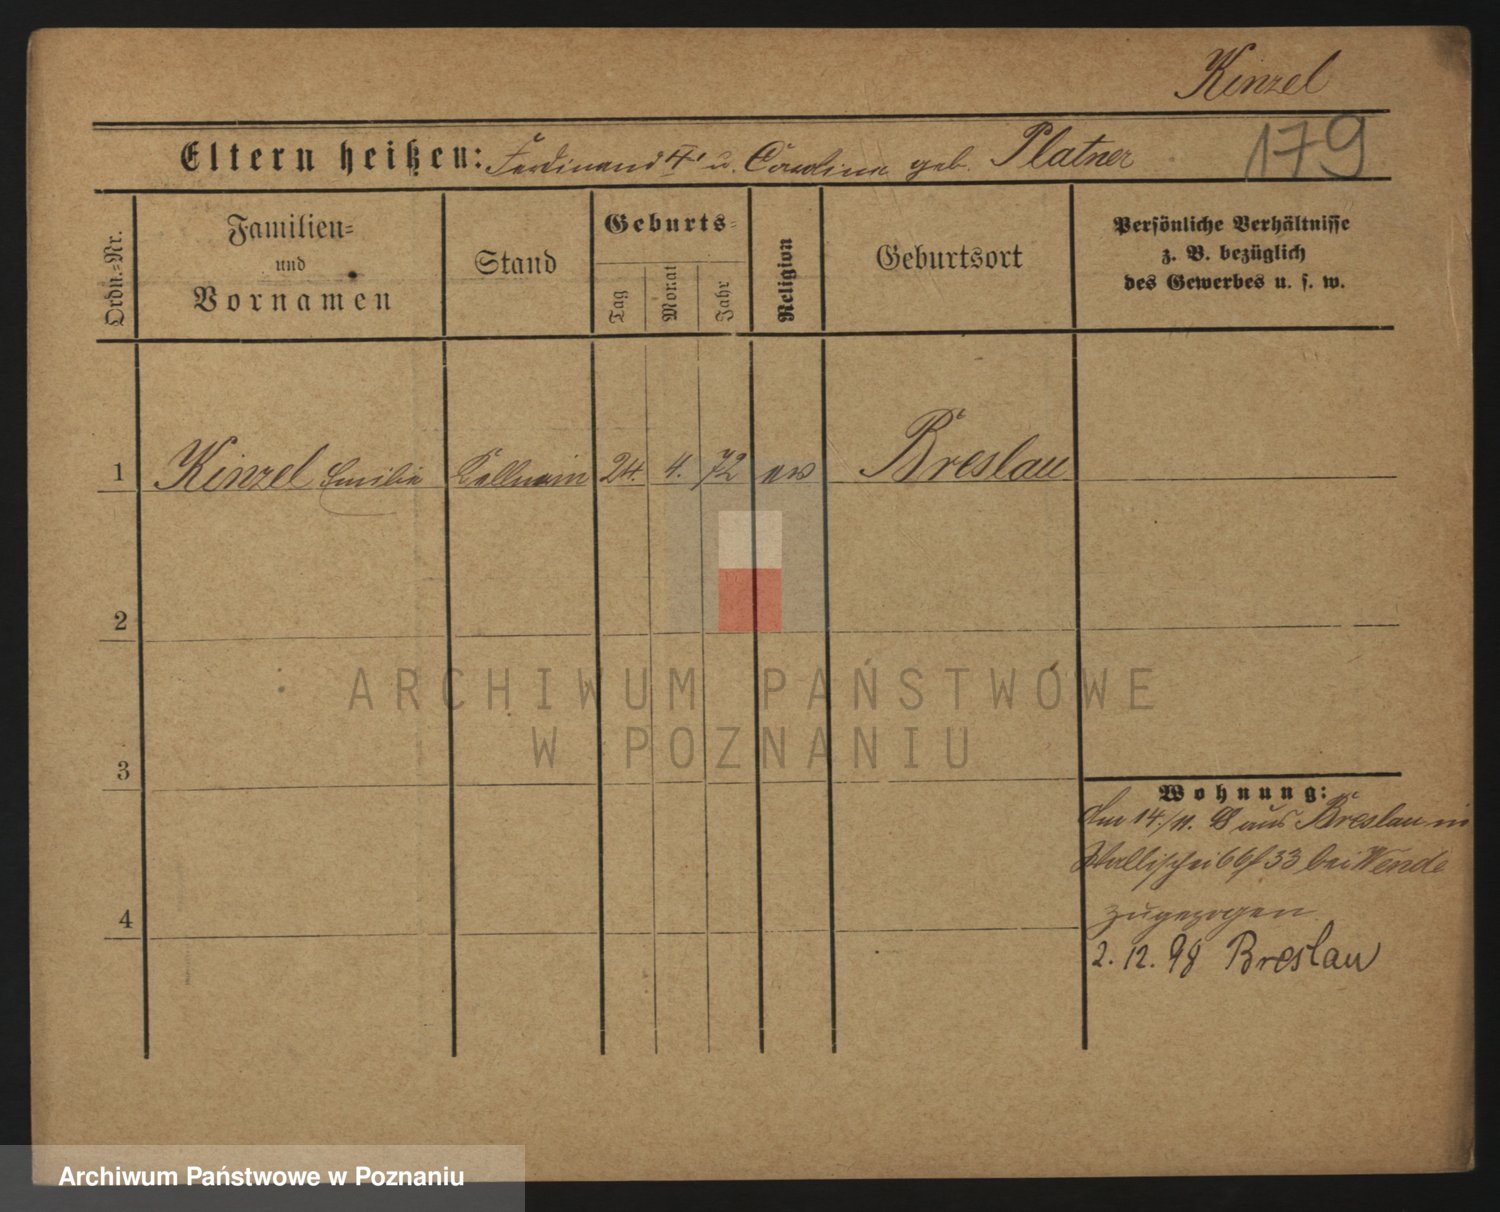 Kinzel
Eltern heißen: Ferdinand † u. Carolina geb. Platner
179
Ordn.-Nr.
Familien-
und
Vornamen
Stand
Geburts-
Tag
Monat
Jahr
Religion
Geburtsort
Persönliche Verhältnisse
z. B. bezüglich
des Gewerbes u. s. w.
1 Kinzel Emilie Kellnerin 24. 4. 72 ev Breslau
2
ARCHIWUM PAŃSTWOWE
W POZNANIU
3
Wohnung:
Am 14./11. 98 aus Breslau in
Wallischei 33 bei Wende
zugezogen
4
2. 12. 98 Breslau
Archiwum Państwowe w Poznaniu